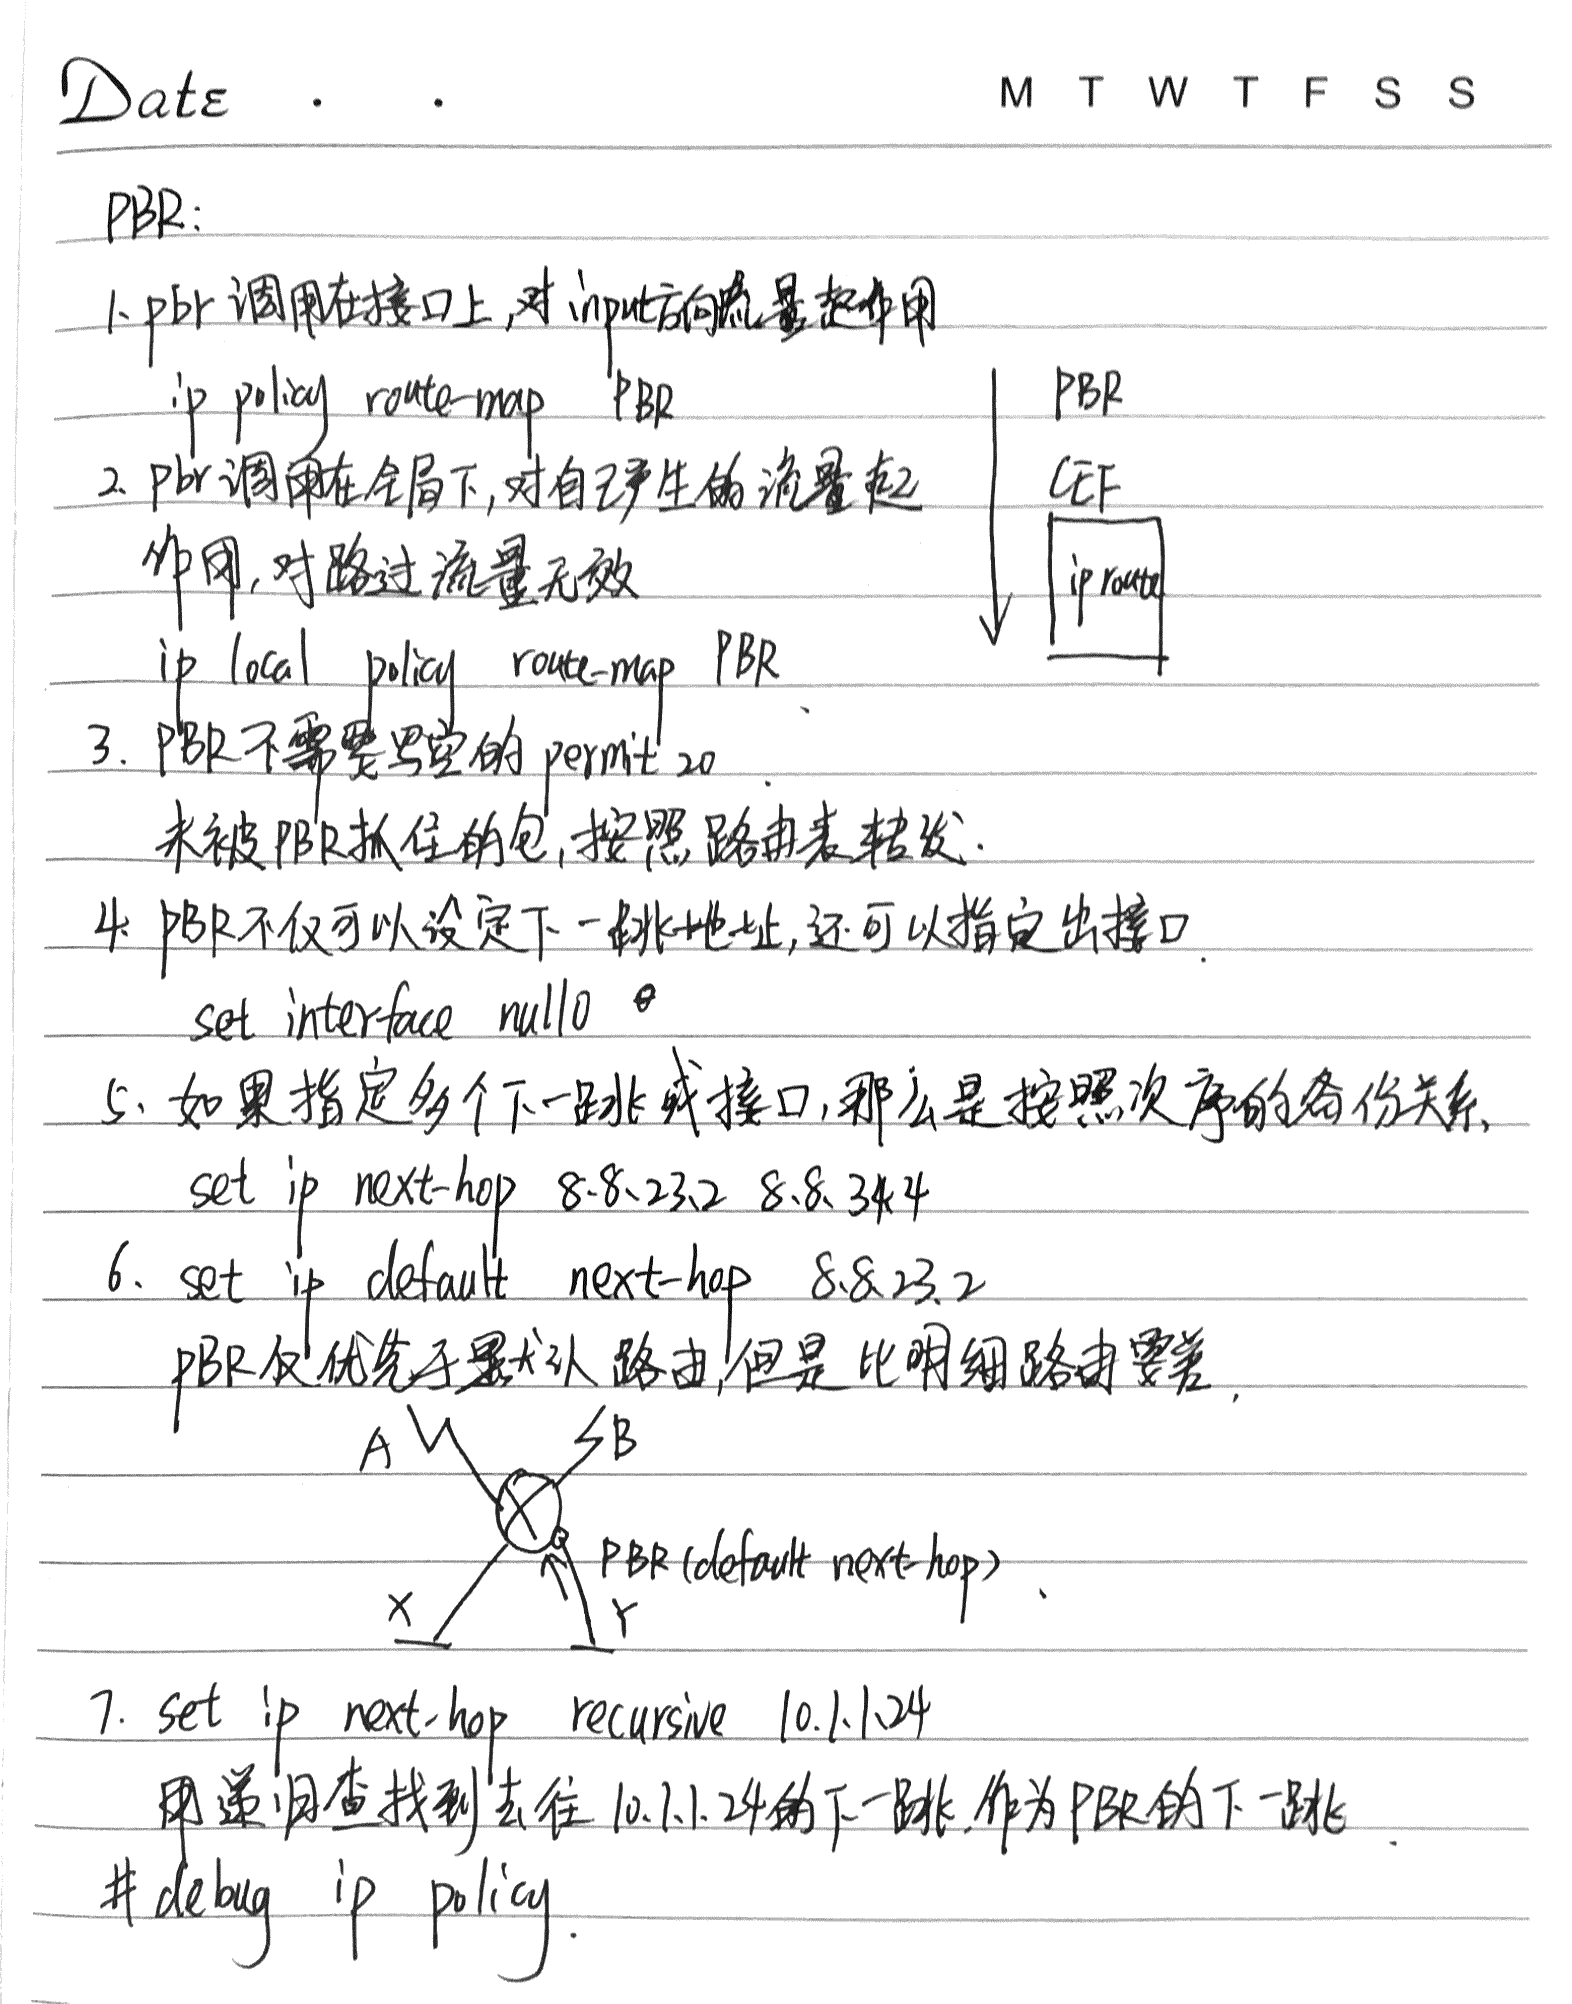 Date . .
M T W T F S S
PBR:
1. pbr 调用在接口上,对input方向流量起作用
ip policy route-map PBR
PBR
2. pbr调用在全局下,对自己产生的流量起
CEF
作用,对路过流量无效
ip route
ip local policy route-map PBR
3. PBR不需要写空的 permit 20
未被PBR抓住的包,按照路由表转发.
4. PBR不仅可以设定下一跳地址,还可以指定出接口.
set interface null0
5. 如果指定多个下一跳或接口,那么是按照次序的备份关系.
set ip next-hop 8.8.23.2 8.8.34.4
6. set ip default next-hop 8.8.23.2
PBR仅优先于默认路由,但是比明细路由要差.
A
B
PBR(default next-hop)
X
Y
7. set ip next-hop recursive 10.1.1.24
用递归查找到去往10.1.1.24的下一跳.作为PBR的下一跳.
# debug ip policy.